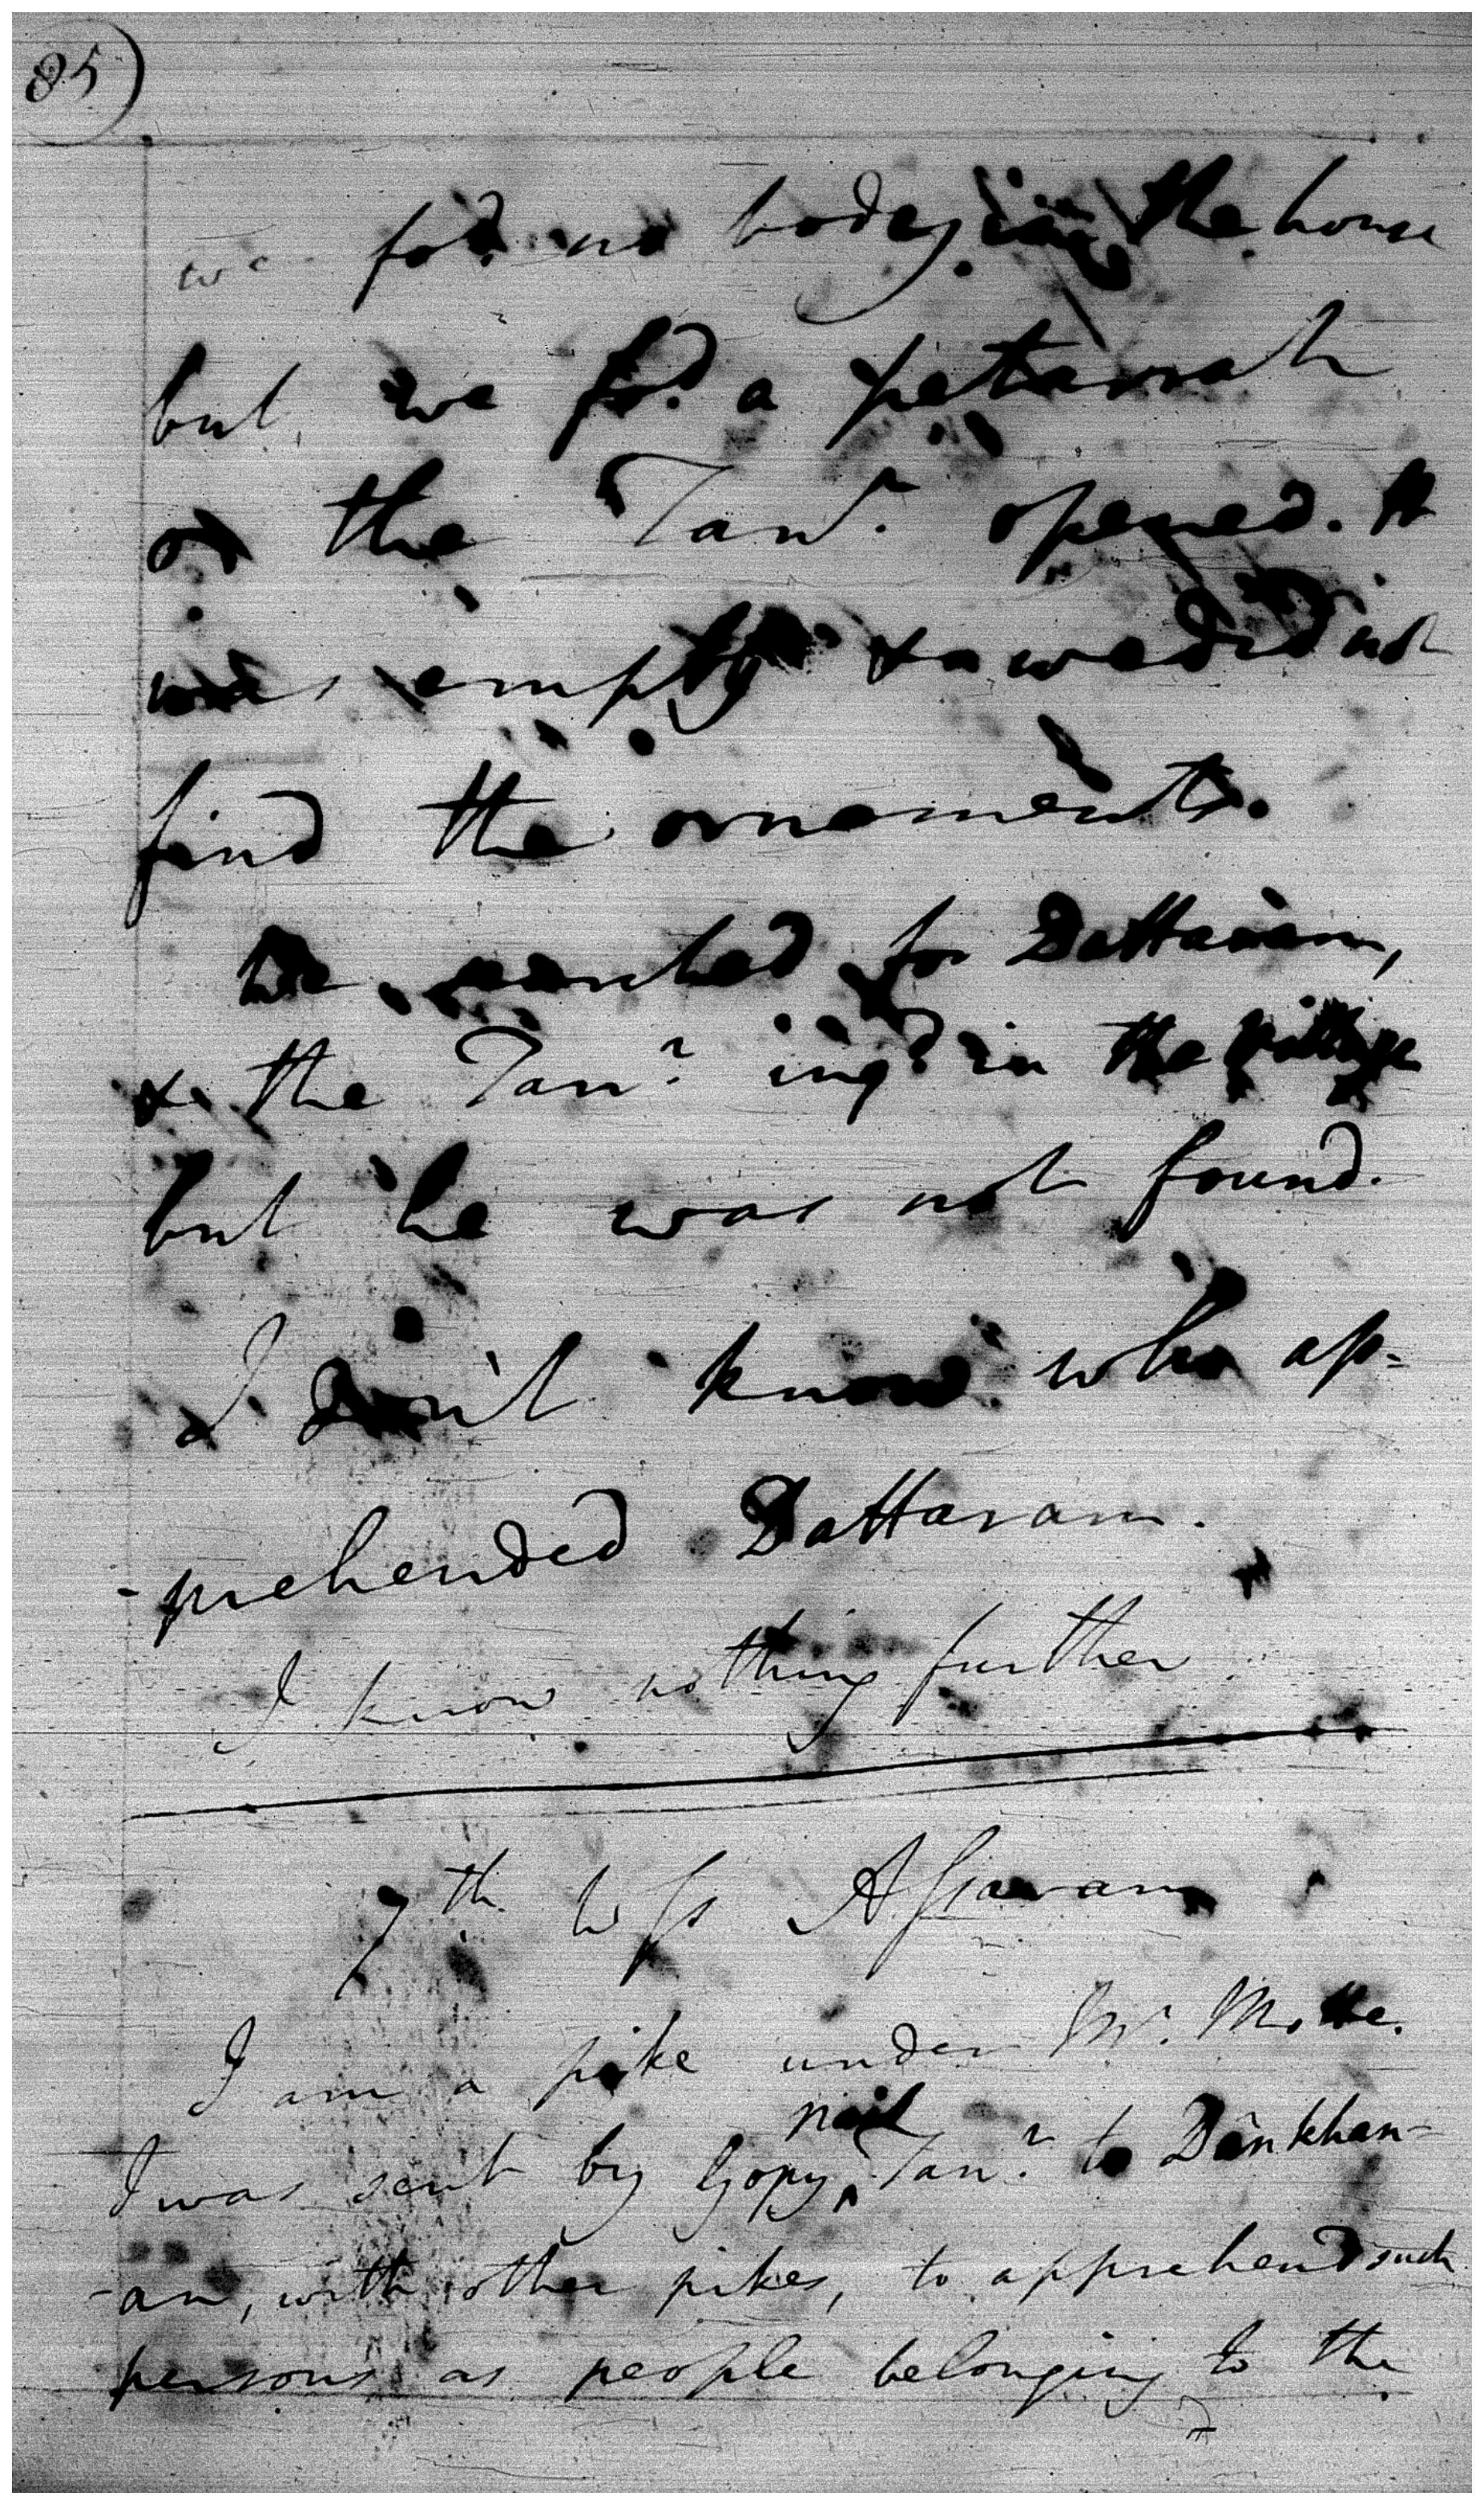 85)
we fo.d no bodey in the house
but we fo.d a petarrah
the Tan.r opened. It
was empty & we did not
find the ornements.
We searched for Dattaram,
& the Tan.r inq.d in the village
but he was not found.
I don't know who ap-
-prehended Dattaram.
I know nothing further.
7th Wss Assaram
I am a pike under Mr. Motte.
naik
I was sent by Gopy ^ Tan.r to Dânkhan-
-an, with other pikes, to apprehend such
persons as people belonging to the